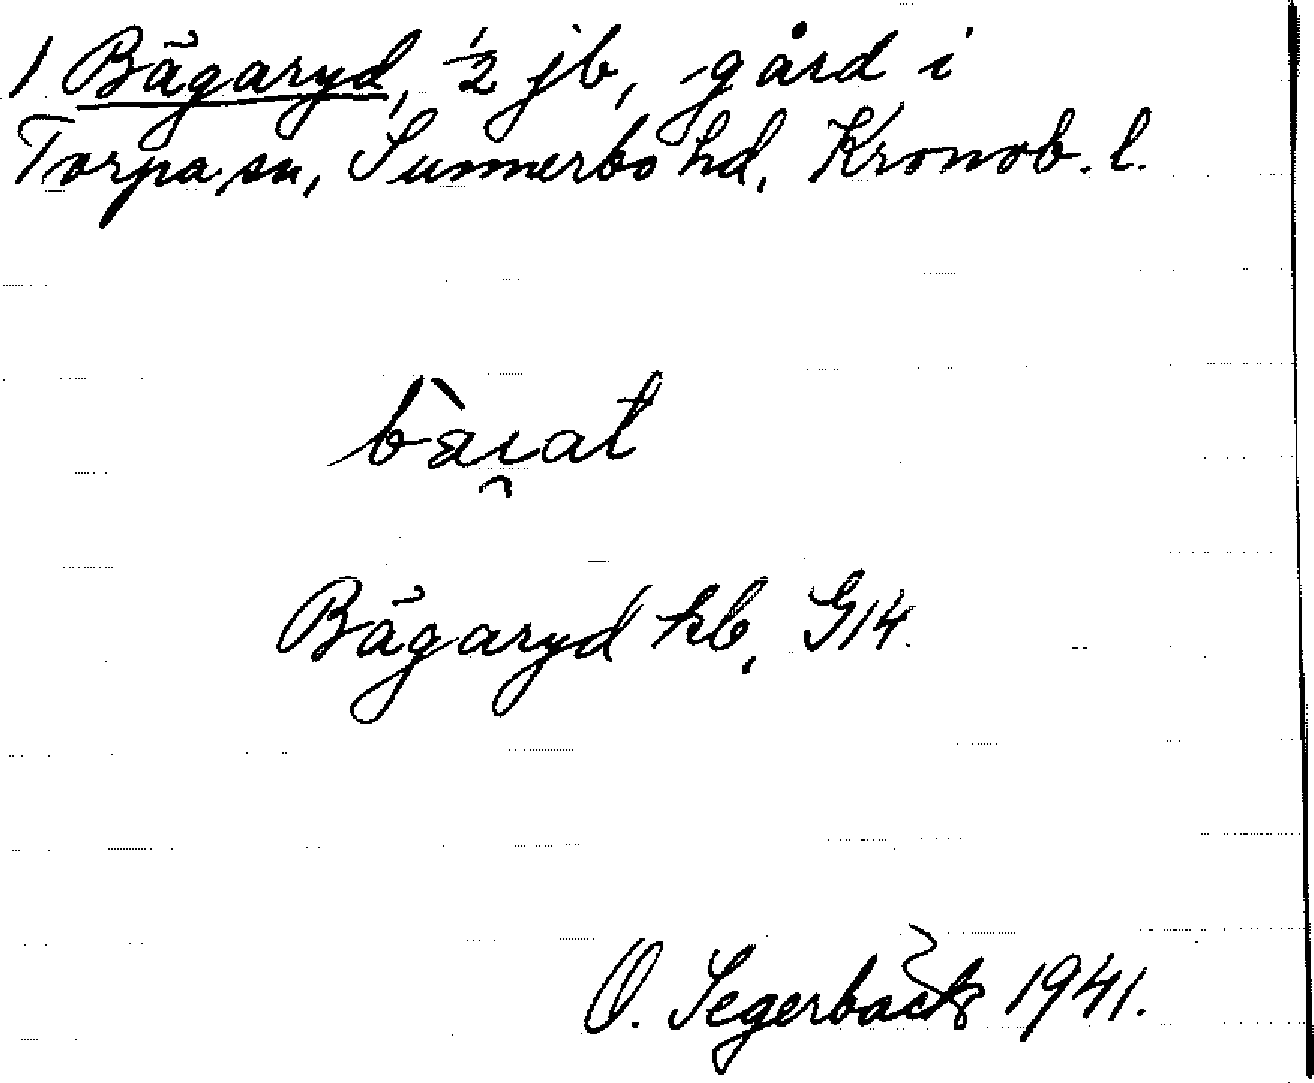 1 Bägaryd, ½ jb, gård i
Torpa sn, Sunnerbo hd, Kronob. l.
Bägaryd kb, G14.
O. Segerbäck 1941.